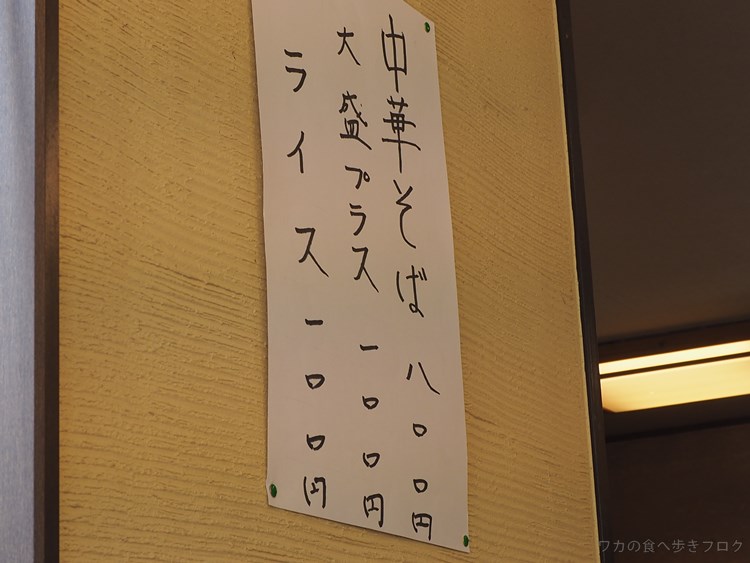 中華そば 八〇〇円
大盛プラス 一〇〇円
ライス 一〇〇円
ワカの食べ歩きブログ